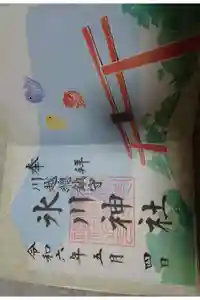 奉拝
川越総鎮守
氷川神社
令和六年五月四日